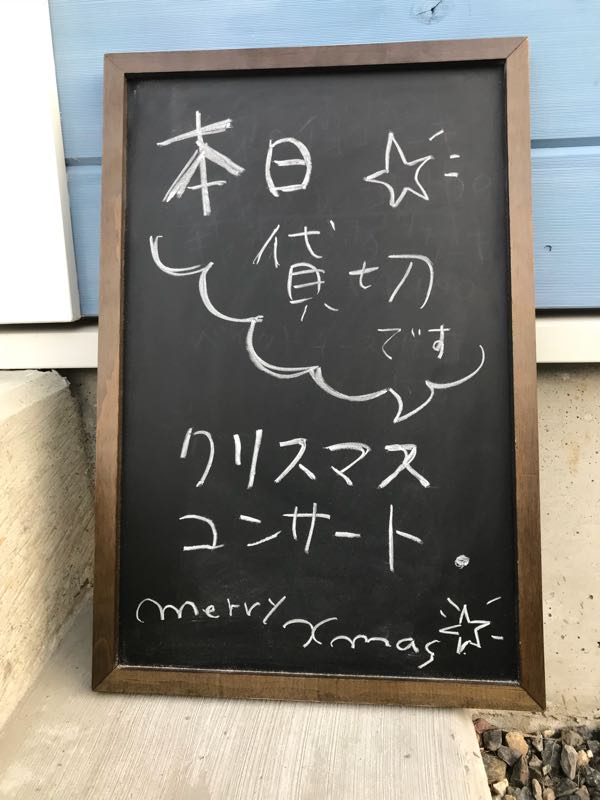 本日
貸切
です
クリスマス
コンサート.
merry
Xmas